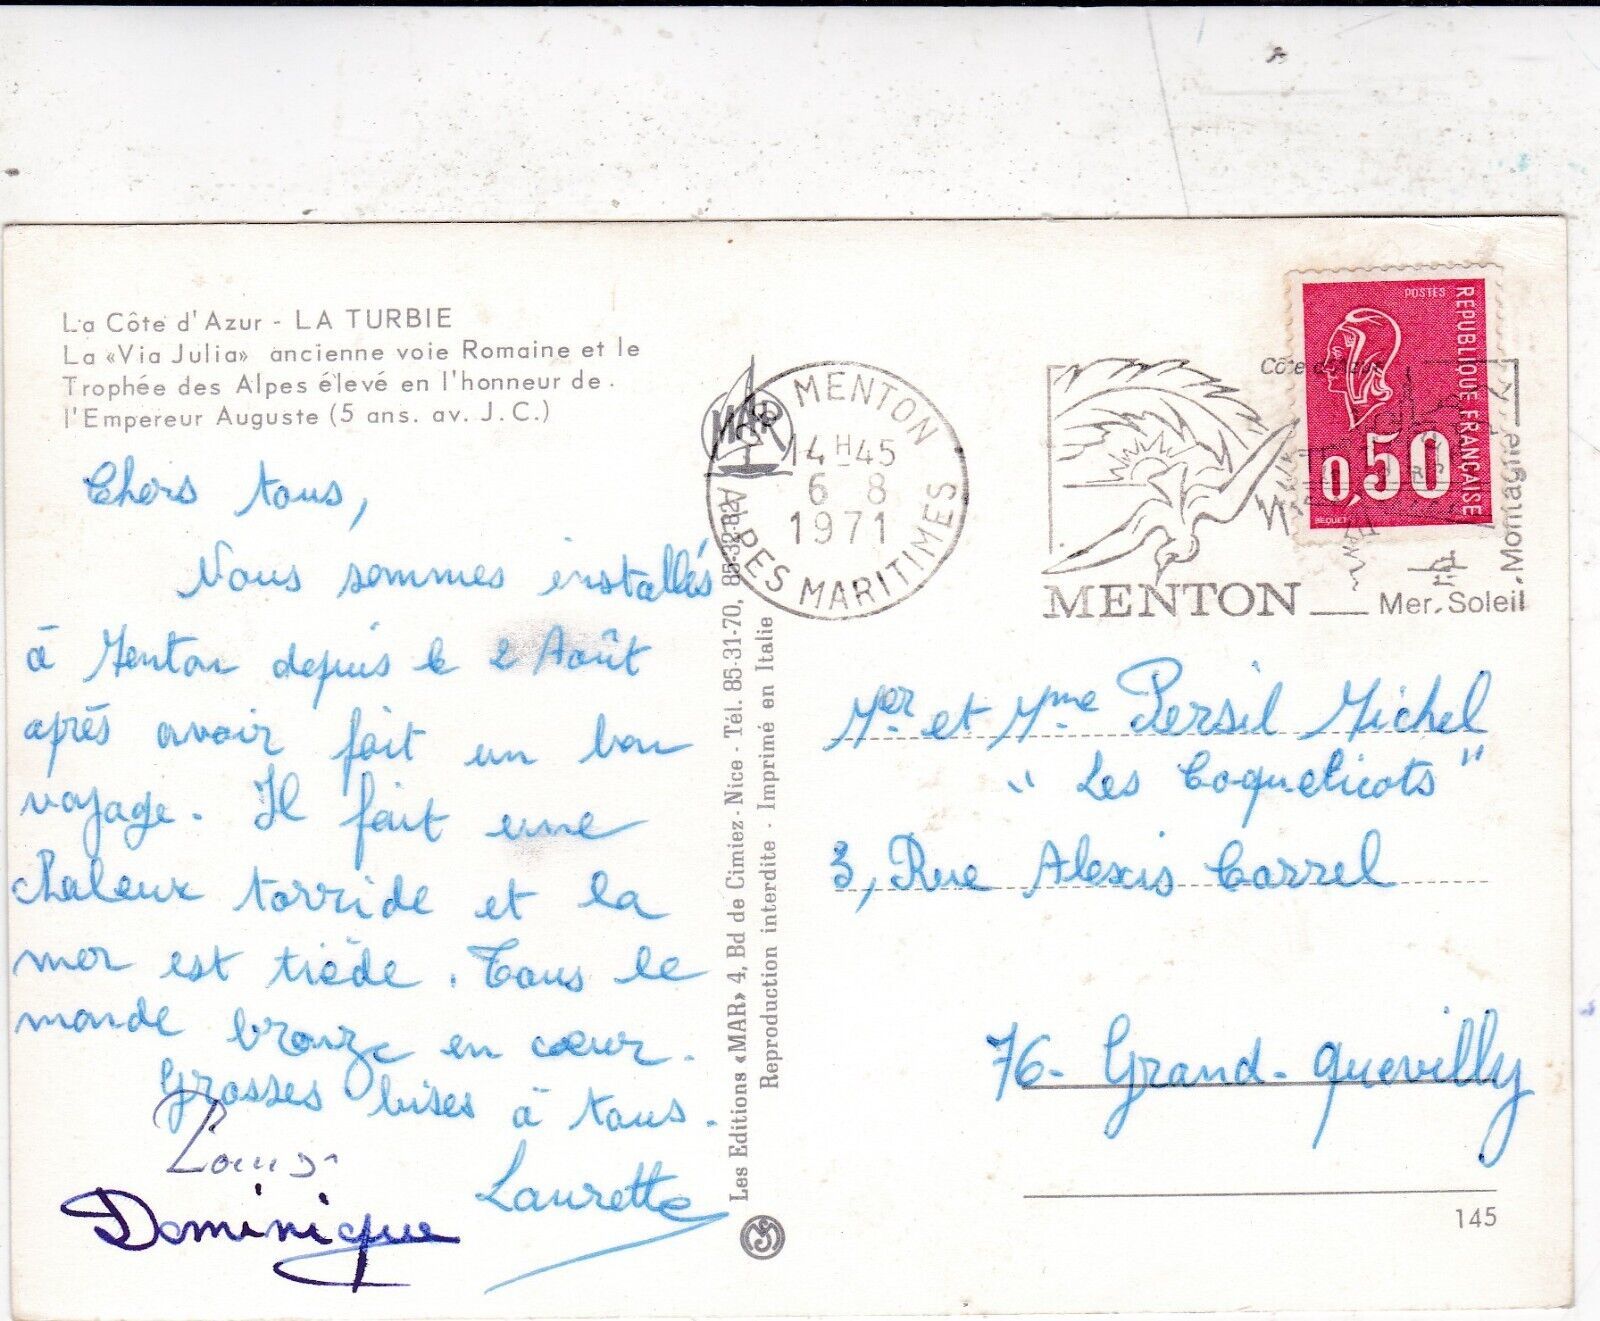 La Côte d'Azur - LA TURBIE
La «Via Julia» ancienne voie Romaine et le
Trophée des Alpes élevé en l'honneur de
l'Empereur Auguste (5 ans. av. J.C.)
Chers tous,
Nous sommes installés
à Menton depuis le 2 Août
après avoir fait un bon
voyage. Il fait une
chaleur torride et la
mer est tiède. Tous le
monde bronze en cœur.
Grosses bises à tous.
Louis
Laurette
Dominique
Les Editions «MAR» 4, Bd de Cimiez - Nice - Tél. 85-31-70, 85-32-82
Reproduction interdite - Imprimé en Italie
MAR
MENTON
14H45
6 8
1971
ALPES MARITIMES
Côte d'Azur
MENTON
Mer. Soleil
.Montagne
POSTES
REPUBLIQUE FRANÇAISE
0,50
BEQUET
Mer et Mme Persil Michel
"Les Coquelicots"
3, Rue Alexis Carrel
76- Grand-Quevilly
145